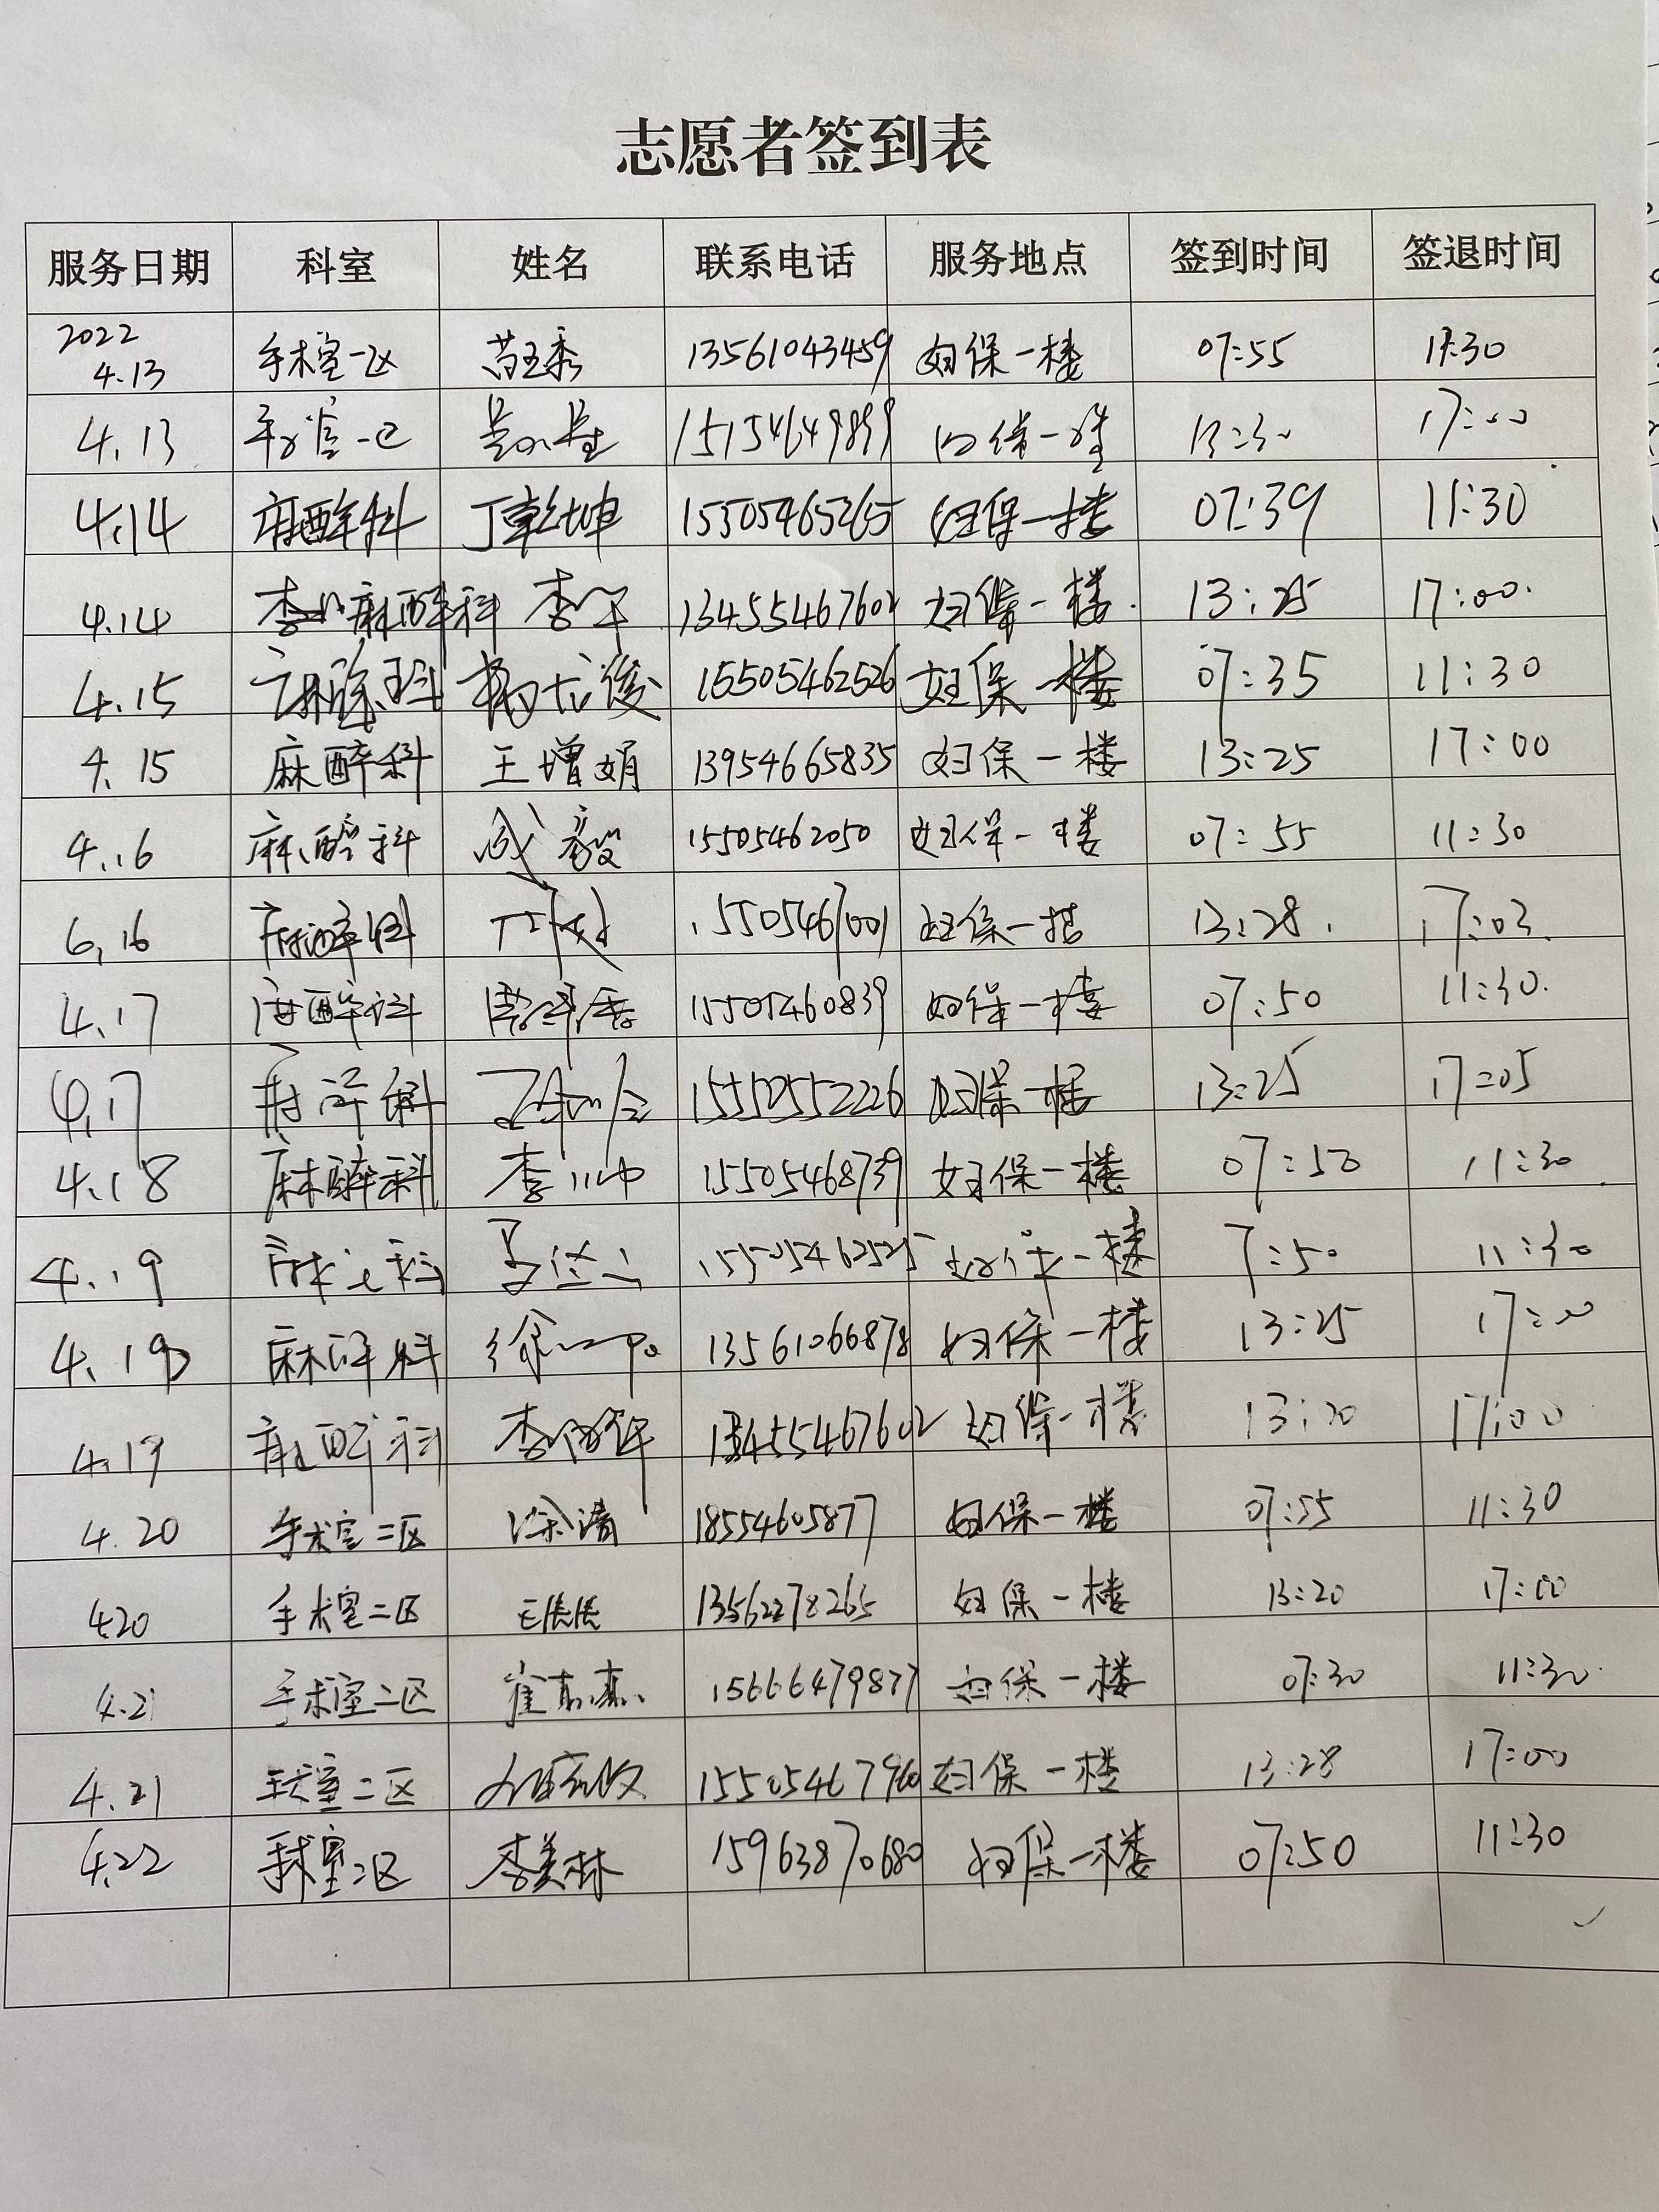 志愿者签到表
服务日期 科室 姓名 联系电话 服务地点 签到时间 签退时间
2022
4.13 手术室一区 苗玉秀 13561043459 妇保一楼 07:55 11:30
4.13 手术室一区 15154649899 妇保一楼 13:30 17:00
4.14 麻醉科 丁乾坤 15505465265 妇保一楼 07:39 11:30
4.14 麻醉科 李 13455467602 妇保一楼. 13:25 17:00.
4.15 麻醉科 杨龙俊 15505462526 妇保一楼 07:35 11:30
4.15 麻醉科 王增娟 13954665835 妇保一楼 13:25 17:00
4.16 麻醉科 成毅 15505462050 妇保一楼 07:55 11:30
6.16 麻醉科 15505467001 妇保一楼 13:28. 17:03.
4.17 麻醉科 15505460839 妇保一楼 07:50 11:30.
4.17 麻醉科 15550552226 妇保一楼 13:25 17:05
4.18 麻醉科 李 15505468739 妇保一楼 07:50 11:30
4.19 麻醉科 15505462525 妇保一楼 7:50 11:30
4.19 麻醉科 徐 13561066878 妇保一楼 13:25 17:00
4.19 麻醉科 李 13455467602 妇保一楼 13:20 17:00
4.20 手术室二区 涂涛 18554605877 妇保一楼 07:55 11:30
4.20 手术室二区 王伥伥 13562278265 妇保一楼 13:20 17:00
4.21 手术室二区 崔 15666479877 妇保一楼 07:30 11:30.
4.21 手术室二区 15505467960 妇保一楼 13:28 17:00
4.22 手术室二区 李美林 15963870680 妇保一楼 07:50 11:30